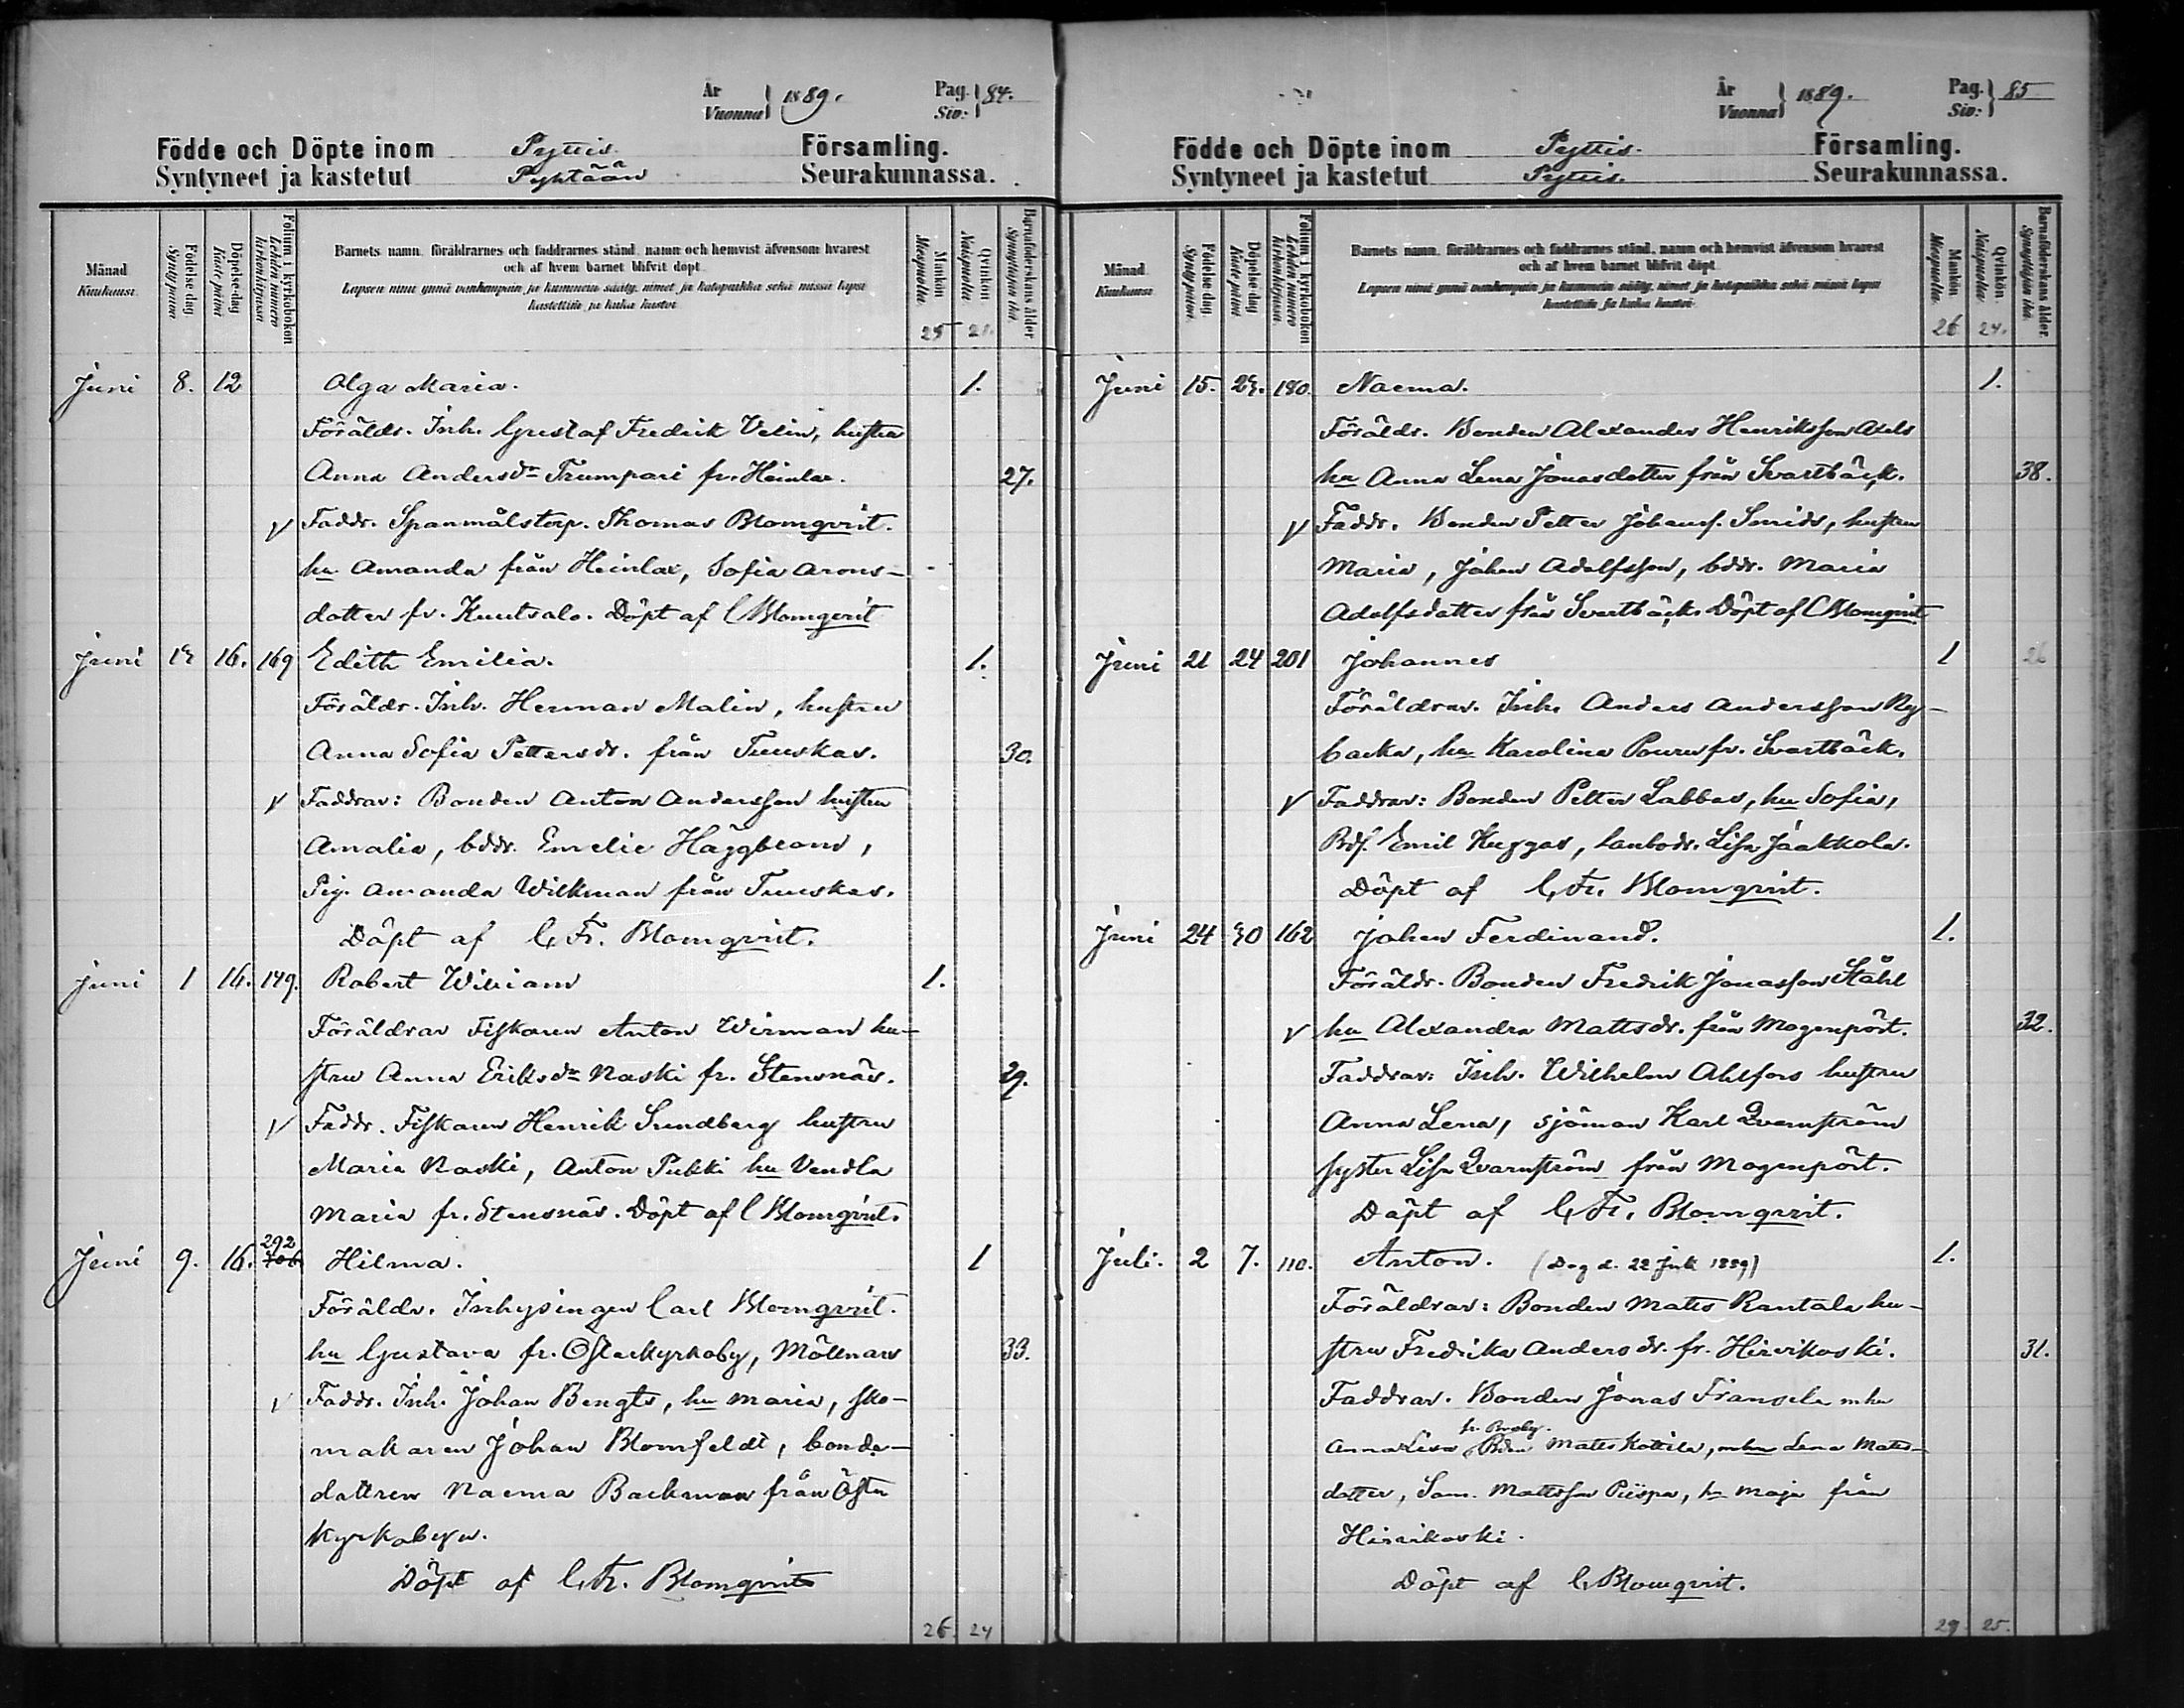 År Vuonna } 1889. Pag. Siv: } 84.
Födde och Döpte inom Pyttis. Församling.
Syntyneet ja kastetut Pyhtään Seurakunnassa.
Månad Kuukausi.
Födelse dag. Syntypäivä
Döpelse dag Kastepäivä
Folium i kyrkoboken Lehden numero kirkonkirjassa
Barnets namn, föräldrarnes och faddrarnes stånd, namn och hemvist äfvensom hvarest
och af hvem barnet blifvit döpt.
Lapsen nimi ynnä vanhempain ja kummein sääty, nimet ja kotopaikka sekä missä lapsi
kastettiin ja kuka kastoi.
Mankön Miespuolia. 25
Qvinkön Naispuolia. 21.
Barnaföderskans ålder Synnyttäjän ikä.
Juni 8. 12 Olga Maria. 1.
Föräldr. Inh. Gustaf Fredrik Velin, hustru
Anna Andersdr Trumpari fr. Heinlax. 27.
V Faddr. Spanmålstorp. Thomas Blomqvist.
hu Amanda från Heinlax, Sofia Arons-
dotter fr. Kuutsalo. Döpt af C Blomqvist
Juni 12 16. 169 Edith Emilia. 1.
Föräldr. Inh. Herman Malin, hustru
Anna Sofia Pettersdr. från Tuuskas. 30.
V Faddrar: Bonden Anton Andersson hustru
Amalia, bddr. Emelie Häggblom,
Pig. Amanda Wilkman från Tuuskas.
Döpt af C. Fr. Blomqvist.
Juni 1 16. 149. Robert William 1.
Föräldrar Fiskaren Anton Wirman hu-
stru Anna Eriksdr Naski fr. Stensnäs. 29.
V Faddr. Fiskaren Henrik Sundberg hustru
Maria Naski, Anton Pukki hu Vendla
Maria fr. Stensnäs. Döpt af C Blomqvist.
Juni 9. 16. 292 306 Hilma. 1
Föräldr. Inhysingen Carl Blomqvist.
hu Gustava fr. Österkyrkoby, Möllnars 33.
V Faddr. Inh. Johan Bengts, hu Maria, sko-
makaren Johan Blomfeldt, bonde-
dottren Naema Backman från Öster
Kyrkobyn.
Döpt af C. Fr. Blomqvist
26. 24
År Vuonna } 1889. Pag. Siv: } 85
Födde och Döpte inom Pyttis. Församling.
Syntyneet ja kastetut Pyttis. Seurakunnassa.
Månad Kuukausi.
Födelse dag. Syntypäivä.
Döpelse dag Kastepäivä
Folium i kyrkoboken Lehden numero kirkonkirjassa.
Barnets namn, föräldrarnes och faddrarnes stånd, namn och hemvist äfvensom hvarest
och af hvem barnet blifvit döpt.
Lapsen nimi ynnä vanhempain ja kummein sääty, nimet ja kotopaikka sekä missä lapsi
kastettiin ja kuka kastoi.
Mankön Miespuolia. 26
Qvinkön. Naispuolia. 24.
Barnaföderskans ålder. Synnyttäjän ikä.
Juni 15. 23. 180. Naema. 1.
Föräldr. Bonden Alexander Henriksson Axels
hu Anna Lena Jonasdotter från Svartbäck. 38.
V Faddr. Bonden Petter Johanss. Smids, hustru
Maria, Johan Adolfsson, bddr. Maria
Adolfsdotter från Svartbäck. Döpt af C Blomqvist
Juni 21 24 201 Johannes 1 26
Föräldrar. Inh. Anders Andersson Ry-
backa, hu Karolina Pouru fr. Svartbäck.
V Faddrar: Bonden Petter Labbas, hu Sofia,
Bds. Emil Kuggas, landbodr. Lisa Jaakkola.
Döpt af C. Fr. Blomqvist.
Juni 24 30 162 Johan Ferdinand. 1.
Föräldr. Bonden Fredrik Jonasson Ståhl
V hu Alexandra Mattsdr. från Mogenpört. 32.
Faddrar: Inh. Wilhelm Ahlfors hustru
Anna Lena, sjöman Karl Qvarnström
syster Lisa Qvarnström från Mogenpört.
Döpt af C. Fr. Blomqvist.
Juli. 2 7. 110. Anton. (Dog d. 22 Juli 1889) 1.
Föräldrar: Bonden Mats Rantala hu-
stru Fredrika Andersdr. fr. Hirvikoski. 31.
Faddrar. Bonden Jonas Fransila m hu
Anna Lisa Bden Mats Kottila, m hu Lena Mats-
dotter, Sam. Mattsson Piispa, hu Maja från
Hirvikoski.
Döpt af C. Blomqvist.
29. 25.